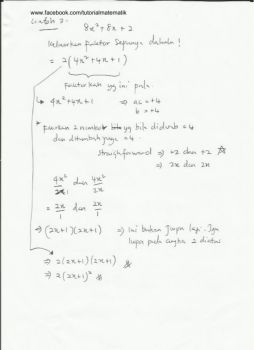 www.facebook.com/tutorialmatematik
Contoh 2:
8x² + 8x + 2
Keluarkan faktor sepunya dahulu!
= 2(4x² + 4x + 1)
faktorkan yg ini pula
→ 4x² + 4x + 1 ⇒ ac = +4
b = +4
* fikirkan 2 nombor yg bila didarab = 4
dan ditambah juga = 4.
straightforward ⇒ +2 dan +2
⇒ 2x dan 2x
4x²/2x dan 4x²/2x
= 2x/1 dan 2x/1
⇒ (2x+1)(2x+1) ⇒ Ini bukan jwpn lagi. Jgn
lupa pada angka 2 diatas
⇒ 2(2x+1)(2x+1)
⇒ 2(2x+1)²